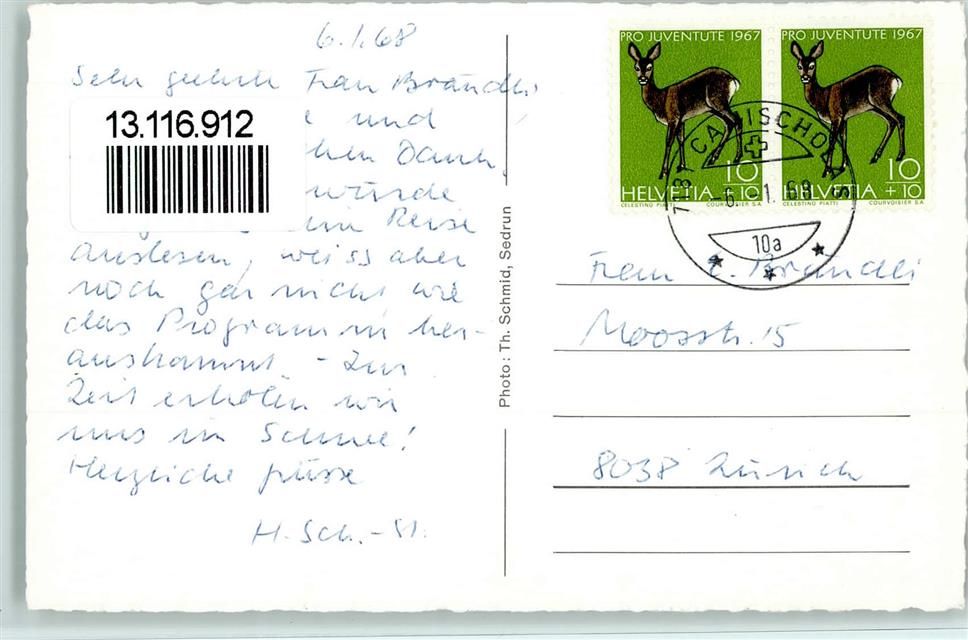 6.1.68
Sehr geehrte Frau Brändli
und
Dank,
würde
Reise
auslesen, weiss aber
noch gar nicht wie
das Programm her-
auskommt - Zur
Zeit erholen wir
uns im Schnee!
Herzliche Grüsse
H. Sch.-St.
13.116.912
Photo: Th. Schmid, Sedrun
PRO JUVENTUTE 1967
10
+10
HELVETIA
CELESTINO PIATTI COURVOISIER S.A
PRO JUVENTUTE 1967
10
+10
HELVETIA
CELESTINO PIATTI COURVOISIER S.A
CAMISCHOLAS
-6. 1. 69
10a
Frau E. Brändli
Moosstr. 15
8038 Zürich